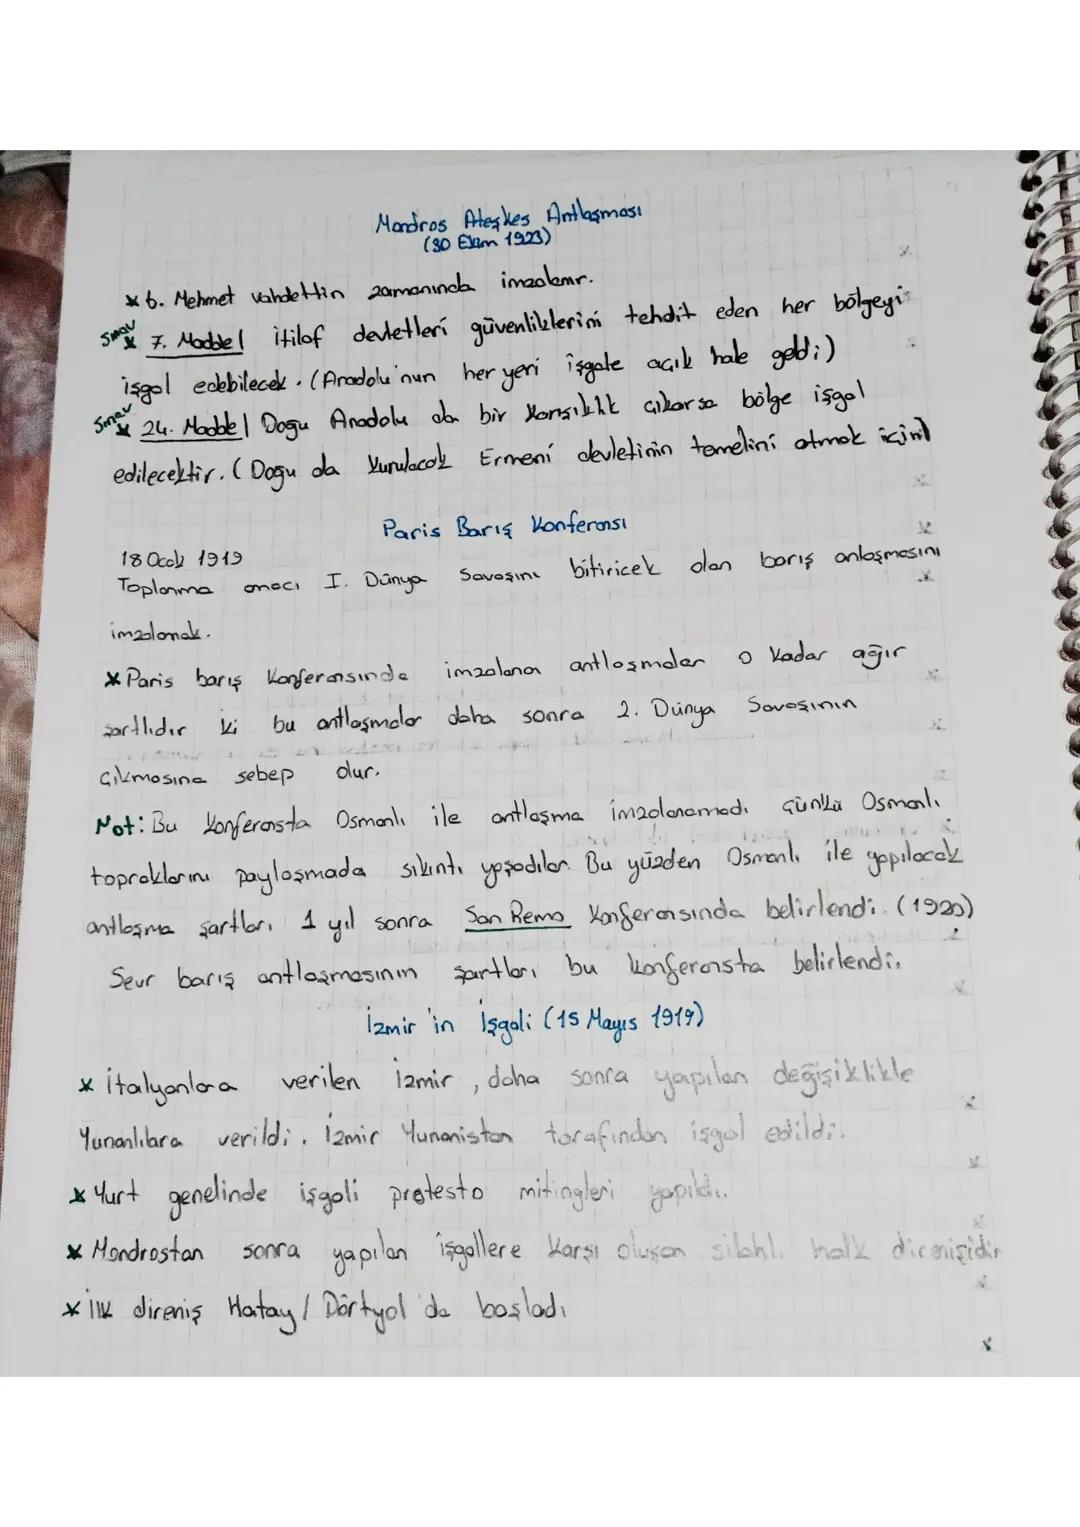 Mondros Ateşkes Antlaşması
(30 Ekim 1923)
* 6. Mehmet Vahdettin zamanında imzalanır.
Sınav
* 7. Madde | İtilaf devletleri güvenliklerini tehdit eden her bölgeyi
işgal edebilecek. (Anadolu'nun her yeri işgale açık hale geldi)
Sınav
* 24. Madde | Doğu Anadolu da bir karışıklık çıkarsa bölge işgal
edilecektir. (Doğu da kurulacak Ermeni devletinin temelini atmak için)
Paris Barış Konferansı
18 Ocak 1919
Toplanma amacı I. Dünya Savaşını bitiricek olan barış anlaşmasını
imzalamak.
* Paris barış konferansında imzalanan antlaşmalar o kadar ağır
şartlıdır ki bu antlaşmalar daha sonra 2. Dünya Savaşının
çıkmasına sebep olur.
Not: Bu konferansta Osmanlı ile antlaşma imzalanamadı çünkü Osmanlı
topraklarını paylaşmada sıkıntı yaşadılar. Bu yüzden Osmanlı ile yapılacak
antlaşma şartları 1 yıl sonra San Remo Konferansında belirlendi. (1920)
Sevr barış antlaşmasının şartları bu konferansta belirlendi.
İzmir'in İşgali (15 Mayıs 1919)
* İtalyanlara verilen İzmir, daha sonra yapılan değişiklikle
Yunanlılara verildi. İzmir Yunanistan tarafından işgal edildi.
* Yurt genelinde işgali protesto mitingleri yapıldı.
* Mondrostan sonra yapılan işgallere karşı oluşan silahlı halk direnişidir
* İlk direniş Hatay / Dörtyol'da başladı